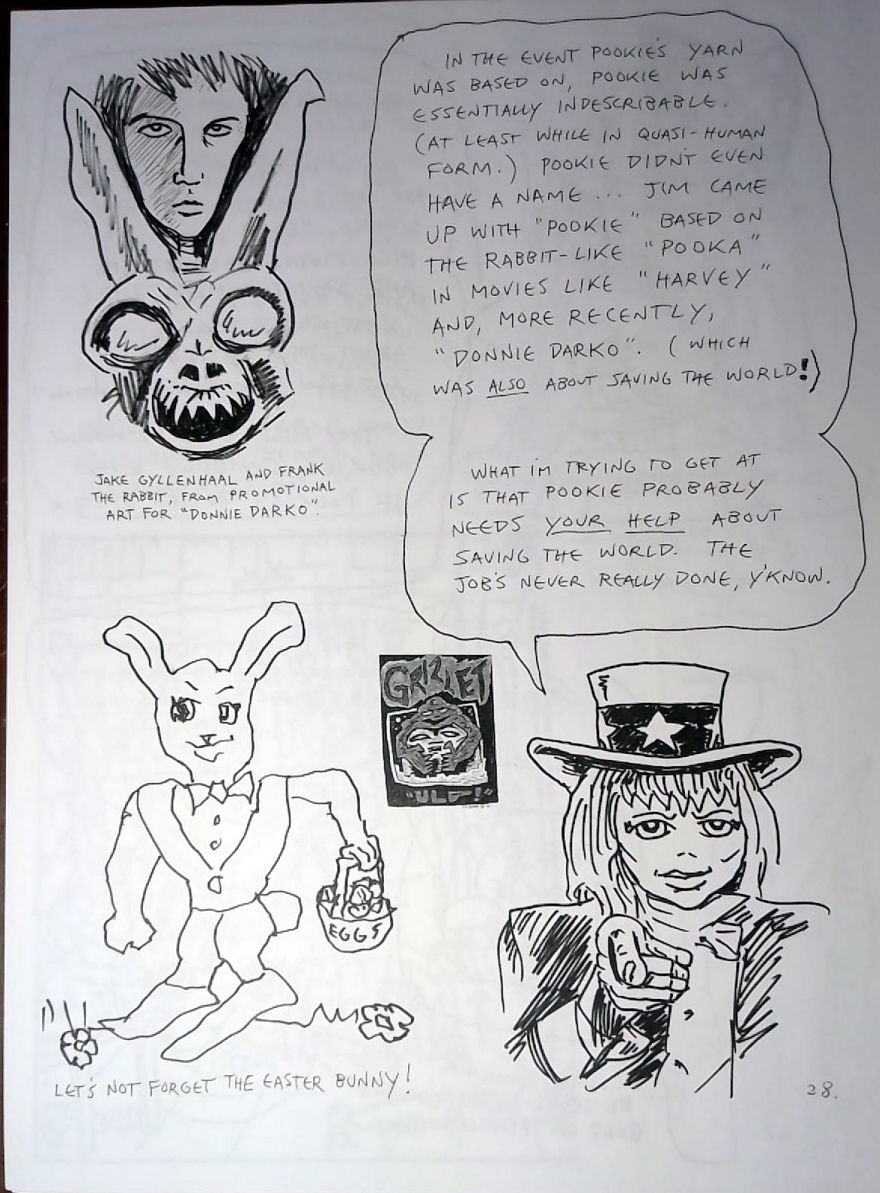 IN THE EVENT POOKIE'S YARN
WAS BASED ON, POOKIE WAS
ESSENTIALLY INDESCRIBABLE.
(AT LEAST WHILE IN QUASI-HUMAN
FORM.) POOKIE DIDN'T EVEN
HAVE A NAME ... JIM CAME
UP WITH "POOKIE" BASED ON
THE RABBIT-LIKE "POOKA"
IN MOVIES LIKE "HARVEY"
AND, MORE RECENTLY,
"DONNIE DARKO". (WHICH
WAS ALSO ABOUT SAVING THE WORLD!)
WHAT I'M TRYING TO GET AT
IS THAT POOKIE PROBABLY
NEEDS YOUR HELP ABOUT
SAVING THE WORLD. THE
JOB'S NEVER REALLY DONE, Y'KNOW.
JAKE GYLLENHAAL AND FRANK
THE RABBIT, FROM PROMOTIONAL
ART FOR "DONNIE DARKO".
"ULP!"
EGGS
LET'S NOT FORGET THE EASTER BUNNY!
28.